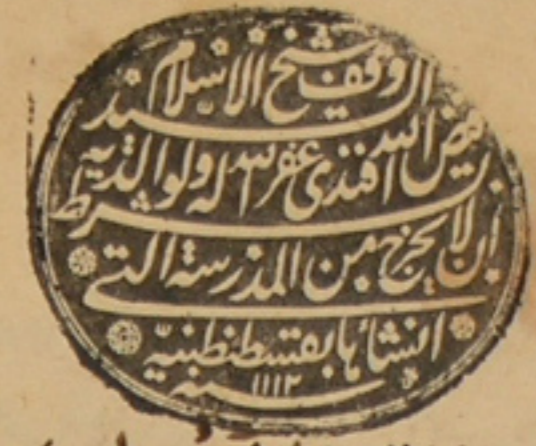 وقف شيخ الاسلام السيد
فيض الله افندى غفر الله له ولوالديه
بشرط ان لا يخرج من المدرسة التى
انشأها بقسطنطنيه
سنة ١١١٢